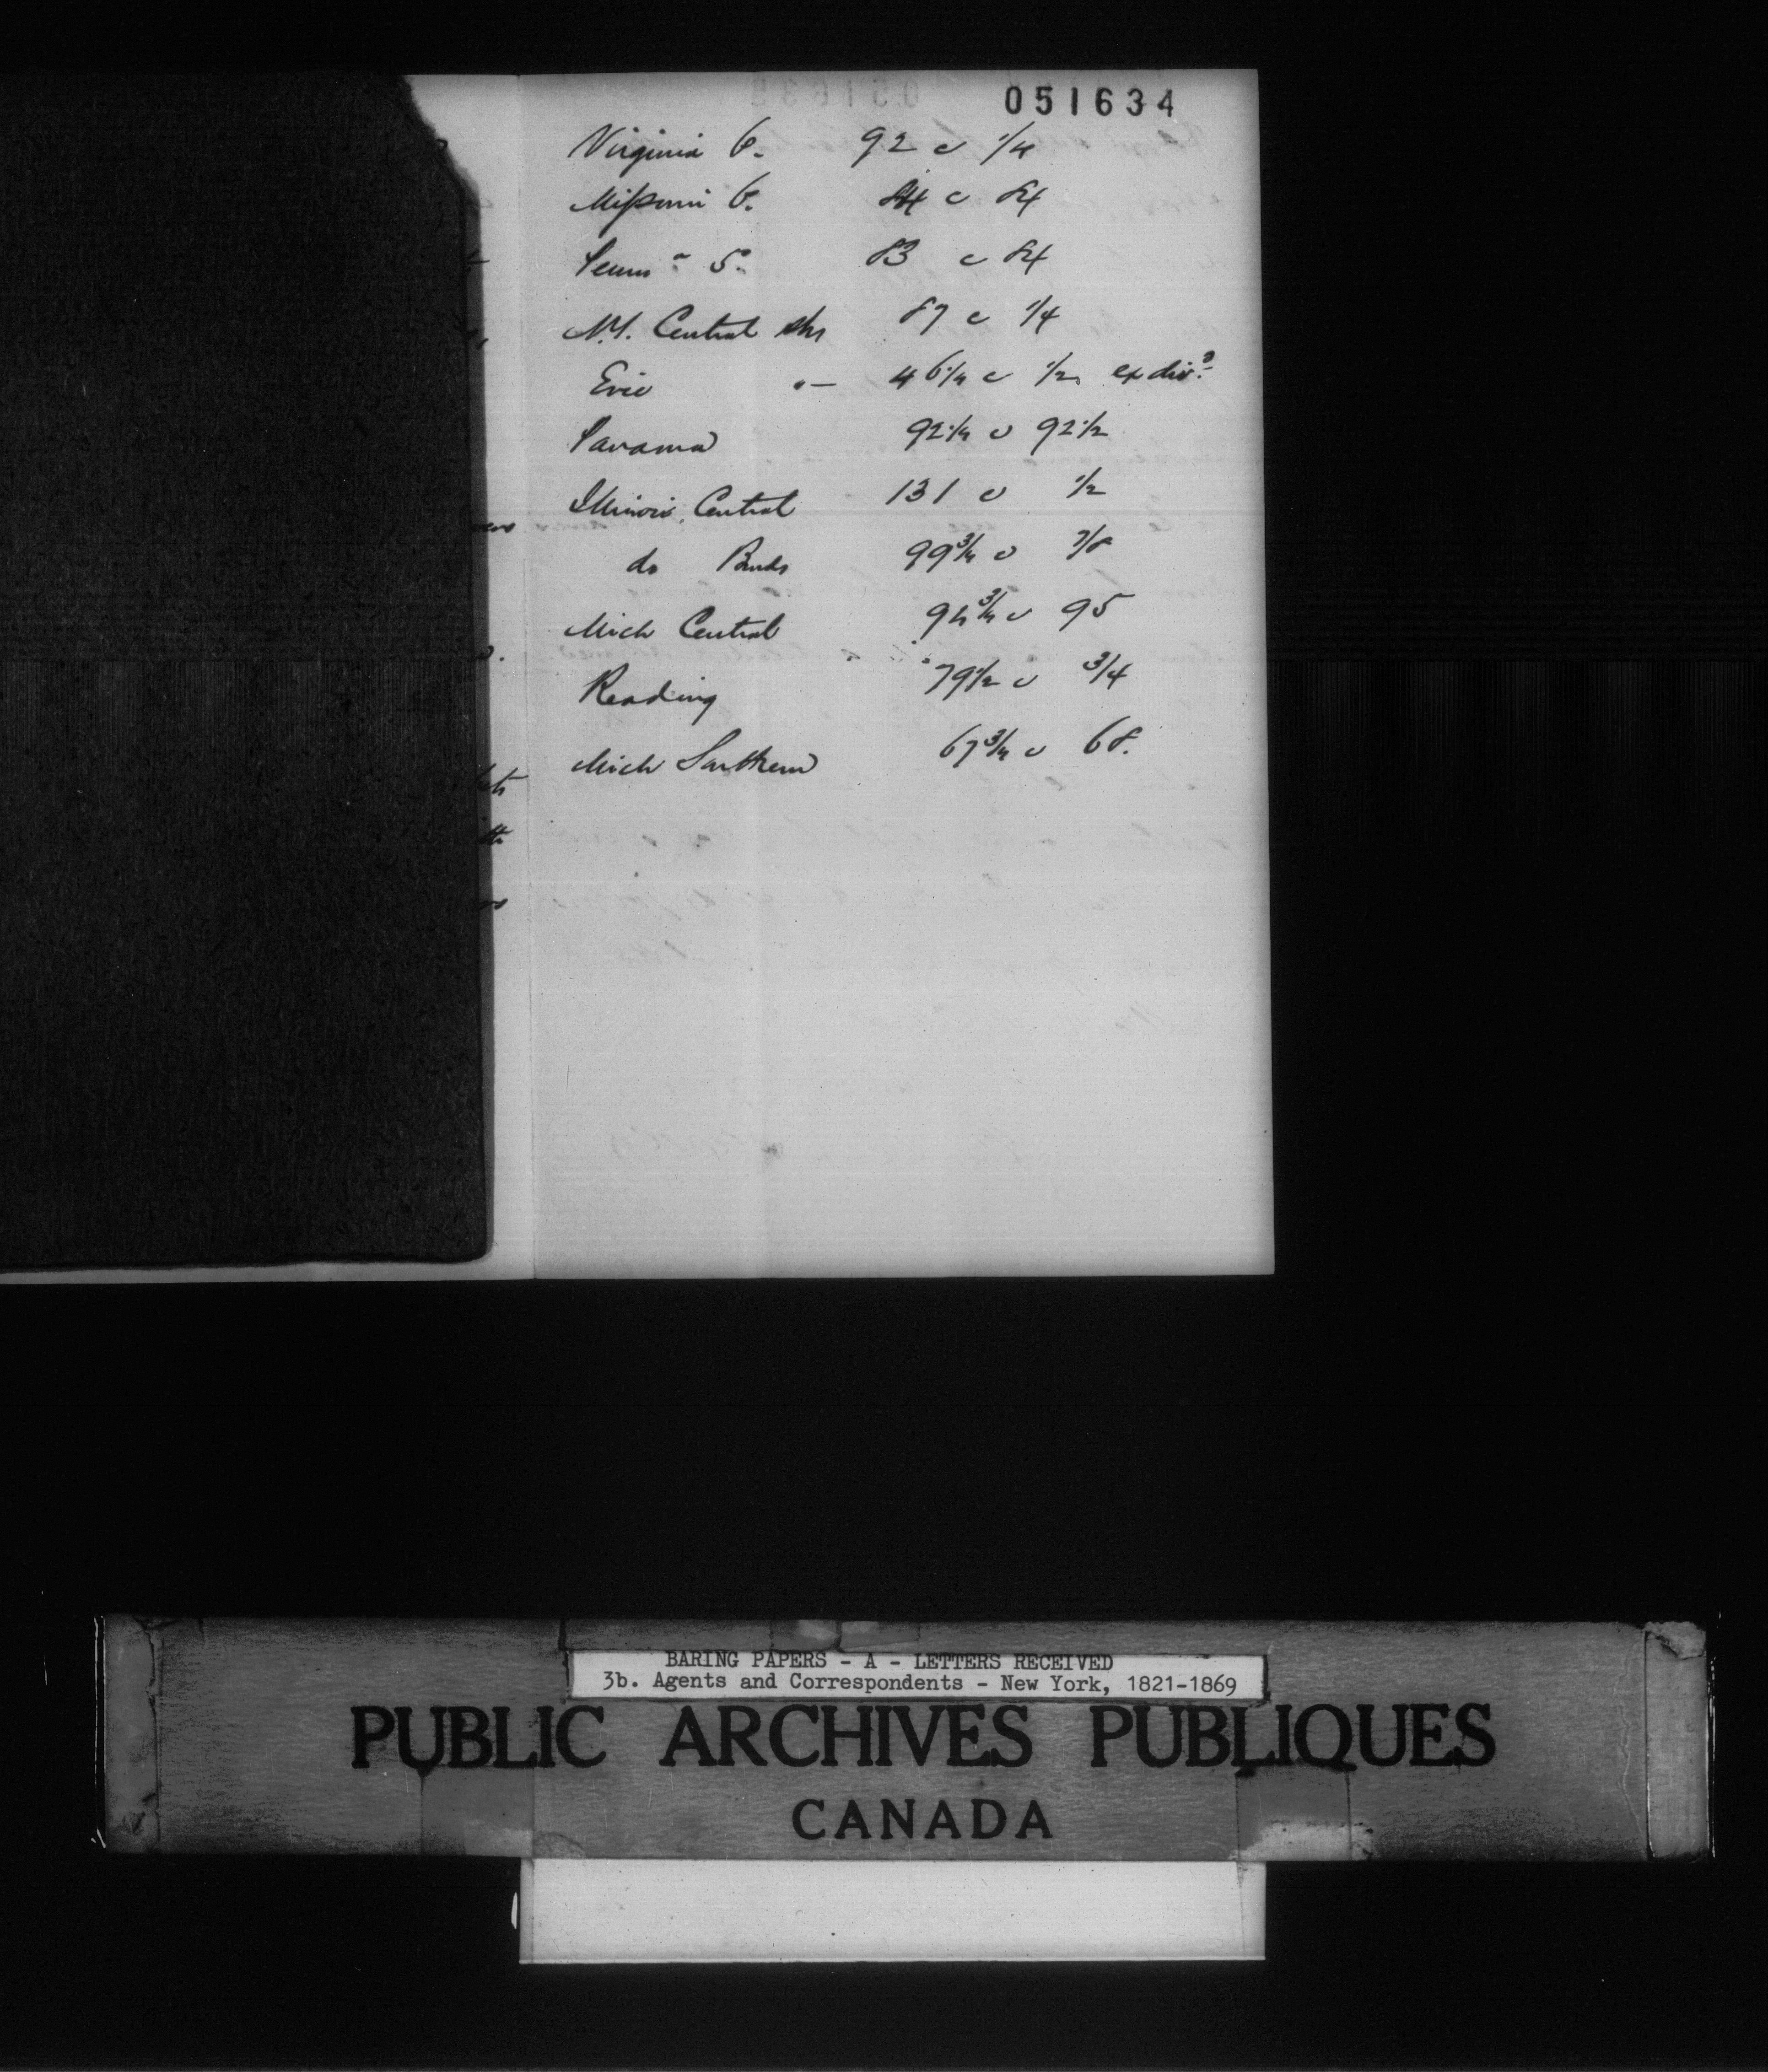 051634
Virginia 6. 92 @ 1/4
Missouri 6. 84 @ 84
Penna 5. 83 @ 84
N.Y. Central shs 87 @ 1/4
Erie "— 46 1/4 @ 1/2 ex divd
Panama 92 1/4 @ 92 1/2
Illinois Central 131 @ 1/2
do Bonds 99 3/4 @ 7/8
Mich Central 94 3/4 @ 95
Reading 79 1/2 @ 3/4
Mich Southern 67 3/4 @ 68.
BARING PAPERS - A - LETTERS RECEIVED
3b. Agents and Correspondents - New York, 1821-1869
PUBLIC ARCHIVES PUBLIQUES
CANADA